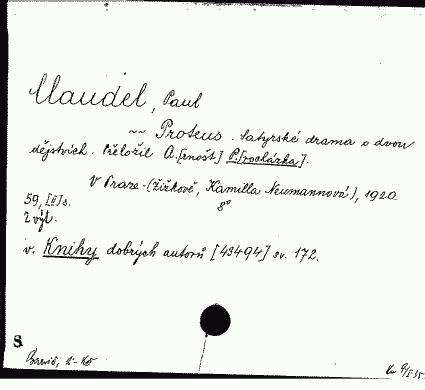 Claudel, Paul
~~ Proteus. Satyrské drama o dvou
dějstvích. Přeložil A.[rnošt] P.[rocházka].
V Praze-(Žižkově, Kamilla Neumannová), 1920.
8°
59, [II] s.
2 výt.
v. Knihy dobrých autorů [43494] sv. 172.
S